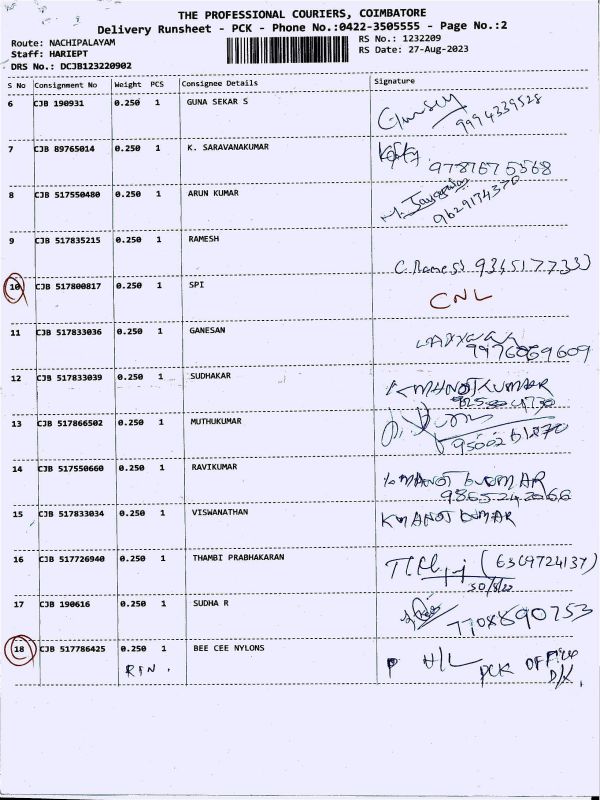 THE PROFESSIONAL COURIERS, COIMBATORE
Delivery Runsheet - PCK - Phone No.:0422-3505555 - Page No.:2
Route: NACHIPALAYAM
RS No.: 1232209
Staff: HARIEPT
RS Date: 27-Aug-2023
DRS No.: DCJB123220902
S No Consignment No Weight PCS Consignee Details Signature
6 CJB 190931 0.250 1 GUNA SEKAR S
9994339528
7 CJB 89765014 0.250 1 K. SARAVANAKUMAR
8 CJB 517550480 0.250 1 ARUN KUMAR
9629174370
9 CJB 517835215 0.250 1 RAMESH
C. Ramesh
10 CJB 517800817 0.250 1 SPI
CNL
11 CJB 517833036 0.250 1 GANESAN
9976859609
12 CJB 517833039 0.250 1 SUDHAKAR
K MANOJ KUMAR
13 CJB 517866502 0.250 1 MUTHUKUMAR
14 CJB 517550660 0.250 1 RAVIKUMAR
K MANOJ KUMAR
9865242066
15 CJB 517833034 0.250 1 VISWANATHAN
K MANOJ KUMAR
16 CJB 517726940 0.250 1 THAMBI PRABHAKARAN
(6369724137)
17 CJB 190616 0.250 1 SUDHA R
7708890753
18 CJB 517786425 0.250 1 BEE CEE NYLONS
RTN.
P H/L PCK OFFICE
D/X.